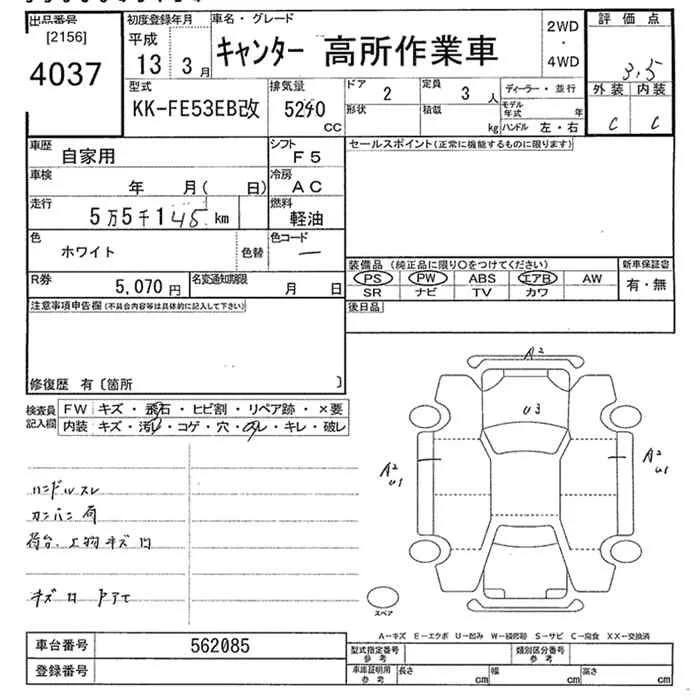 出品番号
[2156]
4037
初度登録年月
平成
13 3月
車名・グレード
キャンター 高所作業車
2WD
・
4WD
評価点
3.5
外装 内装
C C
型式
KK-FE53EB改
排気量
5240
CC
ドア
2
形状
定員
3 人
積載
kg
ディーラー・並行
モデル年式 年
ハンドル 左・右
車歴
自家用
シフト
F5
セールスポイント(正常に機能するものに限ります)
車検
年 月( 日)
冷房
AC
走行
5万5千145km
燃料
軽油
色
ホワイト
色替
色コード
R券
5,070円
名変通知期限
月 日
装備品 (純正品に限り○をつけてください)
PS PW ABS エアB AW
SR ナビ TV カワ
新車保証書
有・無
注意事項申告欄(不具合内容等は具体的に記入して下さい)
後日品
修復歴 有〔箇所 〕
検査員記入欄
FW キズ・飛石・ヒビ割・リペア跡・×要
内装 キズ・汚レ・コゲ・穴・スレ・キレ・破レ
A2
U3
A2
U1
A2
U1
ハンドルスレ
カンバン有
荷台、上物キズ凹
キズ凹
スペア
A−キズ E−エクボ U−凹み W−補修跡 S−サビ C−腐食 XX−交換済
車台番号
562085
登録番号
型式指定番号
参考
類別区分番号
参考
車庫証明用
参考
長さ cm
幅 cm
高さ cm